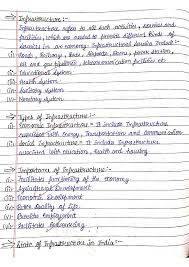 → Infrastructure :-
Infrastructure refers to all such activities, services and
facilities, which are needed to provide different kinds of
services in an economy. Infrastructural Services Include :-
(i) Roads, Railways, Ports, Airports, Dams, power station,
oil and gas pipelines, telecommunication facilities etc
(ii) Educational System
(iii) Health System
(iv) Sanitary System
(v) Monetary System
→ Types of Infrastructure :-
(i) Economic Infrastructure = It Include Infrastructure
associated with Energy, Transportation and Communication
(ii) Social Infrastructure = It Include Infrastructure
associated with education, health and housing
→ Importance of Infrastructure :-
(i) Facilitate functioning of the economy
(ii) Agricultural Development
(iii) Economic Development
(iv) Better Quality of Life.
(v) Provide Employment
(vi) Facilitate outsourcing
→ State of Infrastructure in India :-